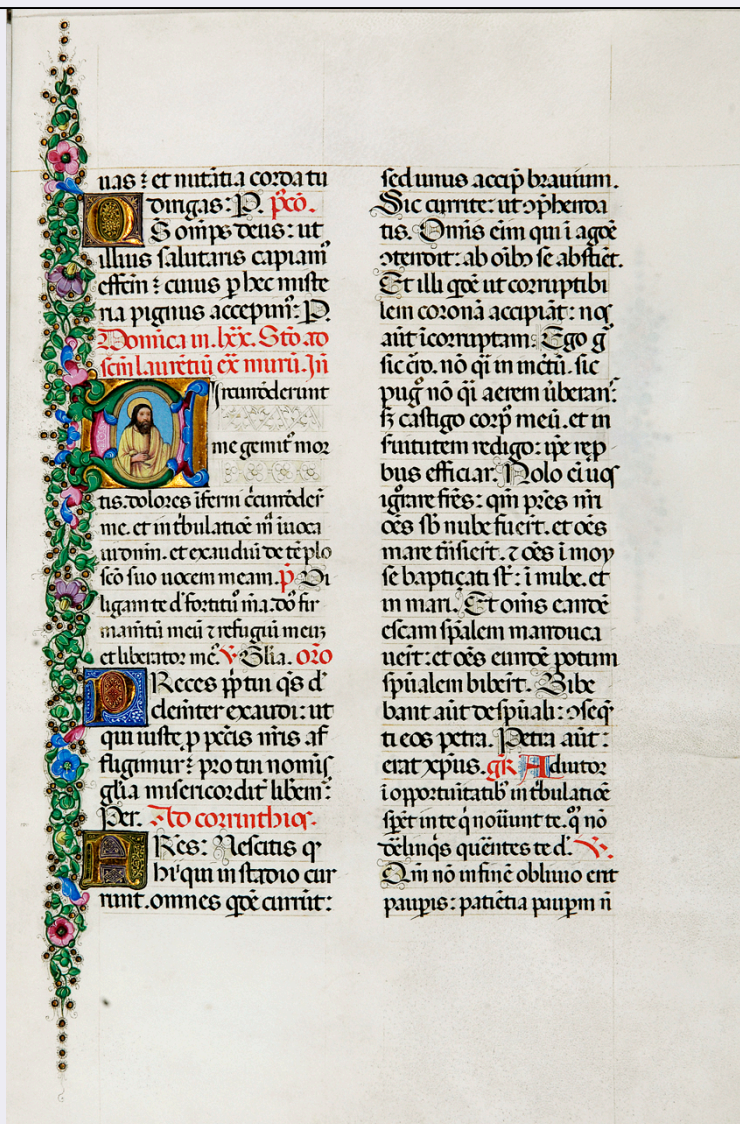 uas ⁊ et mitātia corda tu
dirigas: P. p̄cō.
Oomp̄s deus: ut
illius salutaris capiam᷒
effcm̄ ⁊ cuius p hec miste
ria pignus accepim᷒: P.
Domīca in .lxx. Stō. ad
scm̄ laurētiū ex̄ murū. In̄
Circumdederunt
me gemit᷒ mor
tis. dolores īferni c̄cumdeder̄
me. et in tbulatiōe m̄ īuoca
ui dnm̄. et exaudiū de tēplo
scō suo uocem meam. p̄ Di
ligam te d᷒ fortitū m̄a. dō fir
mam̄tū meū ⁊ refugiū meuʒ
et liberator me᷒. V. Glia. oro
PReces pp̄tin q̄s d᷒
clem̄ter exaudi: ut
qui iuste p pc̄cis nr̄is af
fligimur⁊ pro tui nomīs
glīa misericordit᷒ libem᷒:
Per. Ad corrinthios.
FRēs: Nescitis q᷒
hi᷒ qui in stadio cur
runt. omnes qdē currūt:
sed unus accip̄ brauium.
Sic currite: ut ꝯp̄henda
tis. Omīs eīm qui ī agōe
ꝯtendit: ab oībꝫ se abstiet.
Et illi qdē ut corruptibi
lem coronā accipiāt: nos
aūt īcorruptam. Ego g᷒
sic c̄ro. nō q̄i in incētū. sic
pug᷒ nō q̄i aerem u̇beran᷒:
sꝫ castigo corp᷒ meū. et in
seruitutem redigo: ip̄e rep̄
bus efficiar. Nolo eī uos
igr̄are frēs: qm̄ prēs nr̄i
oēs sb̄ nube fuer̄t. et oēs
mare trāsier̄t. ⁊ oēs ī moy
se bapticati st̄: ī nube. et
in mari. Et oīns eandē
escam sp̄alem manduca
uer̄t: et oēs eundē potum
spūalem biber̄t. Bibe
bant aūt de spūali: ꝯseq̄
ti eos petra. Petra aūt:
erat xp̄us. gr Adiutor
ī opportuītatib᷒ in tbulatiōe
sper̄t in te q̄ nouūnt te. q᷒ nō
delinq̄s quēntes te d᷒. V.
Qm̄ nō in finē obliuio erit
paup̄is: patiētia paup̄m n̄